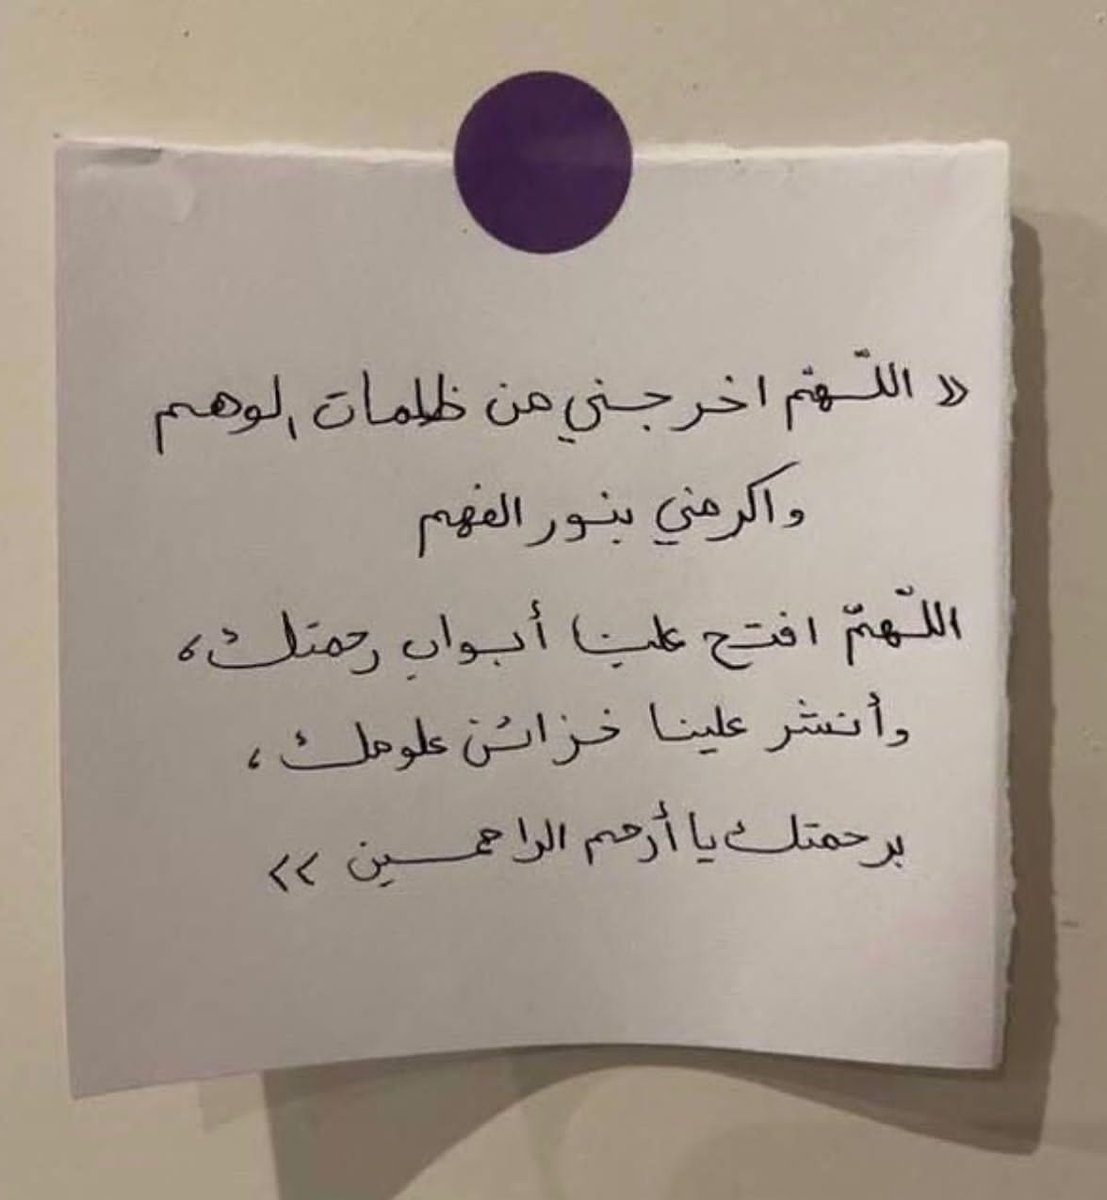 « اللّهمّ اخرجني من ظلمات الوهم
واكرمني بنور الفهم
اللّهمّ افتح علينا أبواب رحمتك،
وأنشر علينا خزائن علومك،
برحمتك يا أرحم الراحمين »